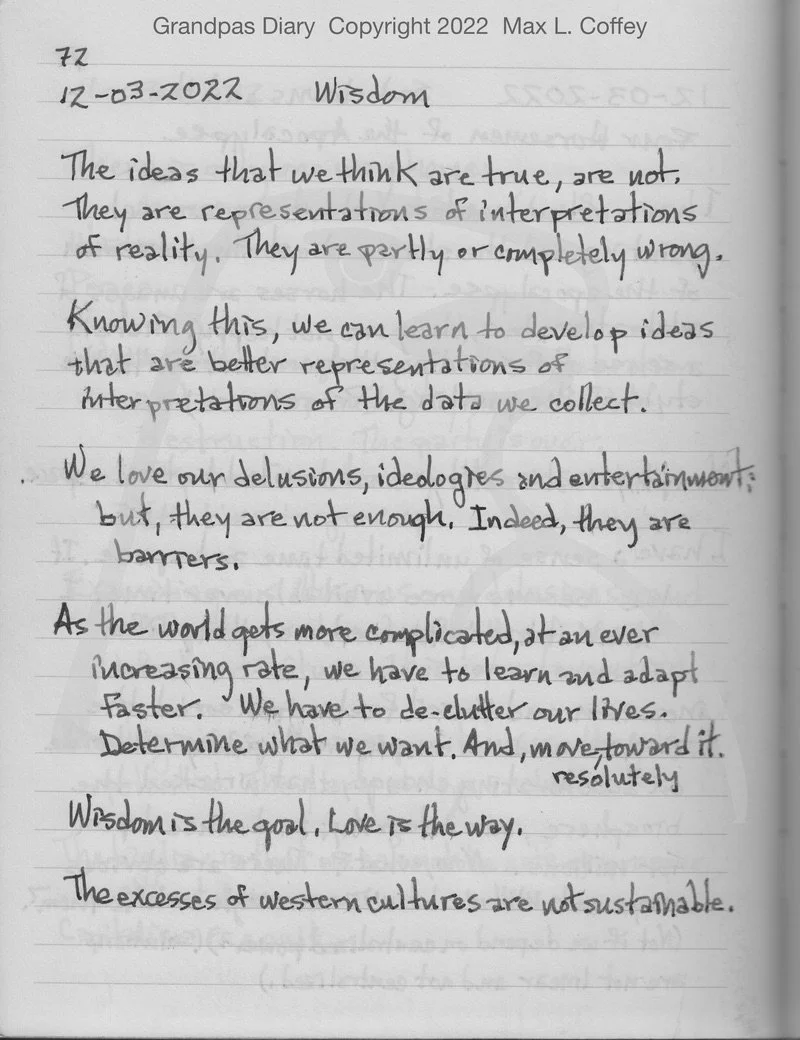 Grandpas Diary Copyright 2022 Max L. Coffey
72
12-03-2022 Wisdom
The ideas that we think are true, are not.
They are representations of interpretations
of reality. They are partly or completely wrong.
Knowing this, we can learn to develop ideas
that are better representations of
interpretations of the data we collect.
We love our delusions, ideologies and entertainment;
but, they are not enough. Indeed, they are
barriers.
As the world gets more complicated, at an ever
increasing rate, we have to learn and adapt
faster. We have to de-clutter our lives.
Determine what we want. And, move toward it.
resolutely
Wisdom is the goal. Love is the way.
The excesses of western cultures are not sustainable.